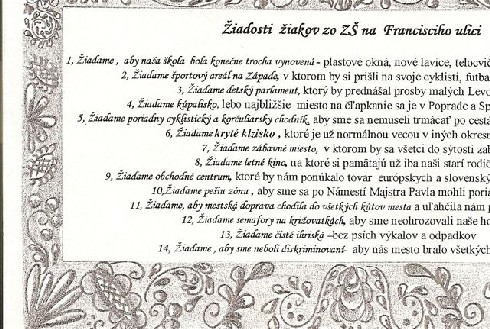 Žiadosti žiakov zo ZŠ na Francisciho ulici
1, Žiadame, aby naša škola bola konečne trocha vynovená - plastové okná, nové lavice, telocvič
2, Žiadame športový areál na Západe, v ktorom by si prišli na svoje cyklisti, futba
3, Žiadame detský parlament, ktorý by prednášal prosby malých Levo
4, Žiadame kúpalisko, lebo najbližšie miesto na čľapkanie sa je v Poprade a Sp
5, Žiadame poriadny cyklistický a korčuliarsky chodník, aby sme sa nemuseli trmácať po cesta
6, Žiadame kryté klzisko, ktoré je už normálnou vecou v iných okres
7, Žiadame zábavné miesto, v ktorom by sa všetci do sýtosti zab
8, Žiadame letné kino, na ktoré si pamätajú už iba naši starí rodič
9, Žiadame obchodné centrum, ktoré by nám ponúkalo tovar európskych a slovenský
10, Žiadame pešiu zónu, aby sme sa po Námestí Majstra Pavla mohli
11, Žiadame, aby mestská doprava chodila do všetkých kútov mesta a uľahčila nám
12, Žiadame semafory na križovatkách, aby sme neohrozovali naše
13, Žiadame čisté ihriská –bez psích výkalov a odpadkov
14, Žiadame, aby sme neboli diskriminovaní- aby nás mesto bralo všetkýc